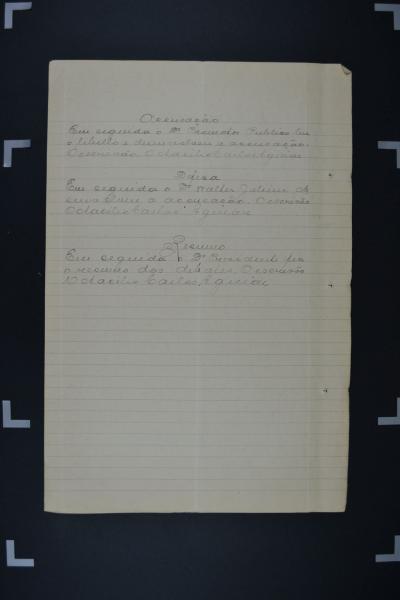 Accusação
Em seguida o Dr. Promotor Publico leu
o libello e demonstrou a accusação.
O escrivão Octacilio Carlos Aguiar
Défesa
Em seguida o Dr. Walter
a accusação. O escrivão
Octacilio Carlos Aguiar
Resumo
Em seguida o Dr. Presidente fez
o resumo dos debates. O escrivão
Octacilio Carlos Aguiar